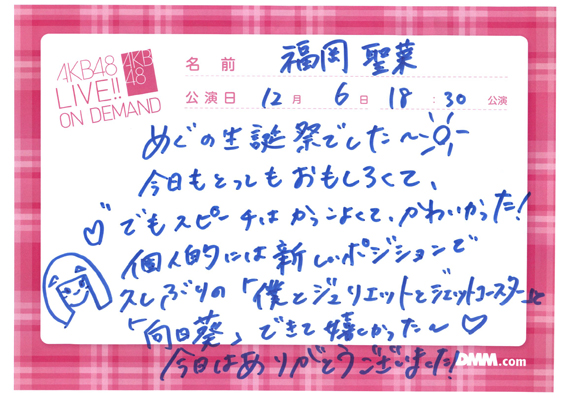 AKB48
LIVE!!
ON DEMAND
AKB
48
名前 福岡 聖菜
公演日 12月 6日 18:30 公演
めぐの生誕祭でした〜
今日もとってもおもしろくて、
でもスピーチはかっこよくて、かわいかった!
個人的には新しいポジションで
久しぶりの「僕とジュリエットとジェットコースター」と
「向日葵」できて嬉しかった〜♡
今日はありがとうございました!
DMM.com